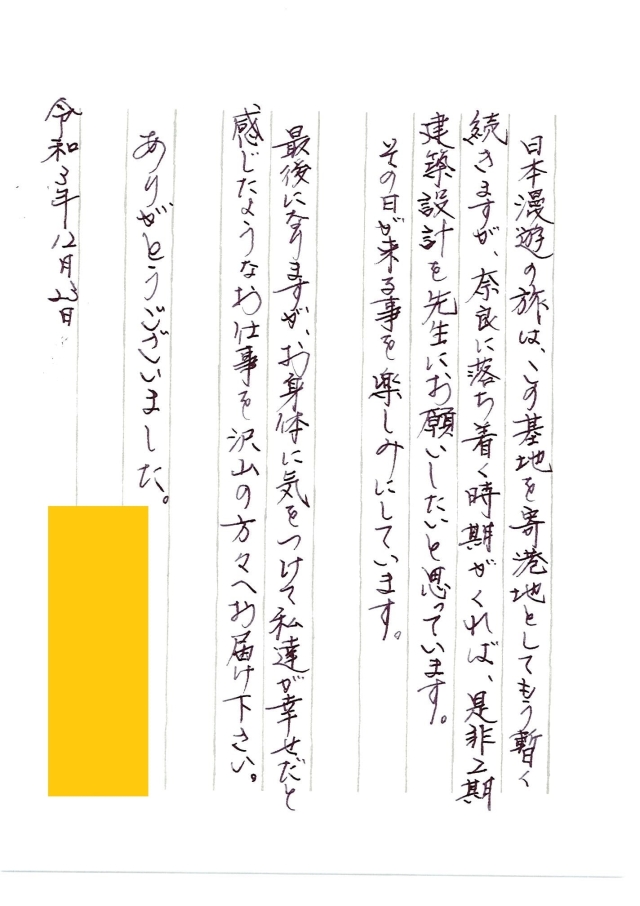 日本漫遊の旅は、この基地を寄港地としてもう暫く
続きますが、奈良に落ち着く時期がくれば、是非2期
建築設計を先生にお願いしたいと思っています。
その日が来る事を楽しみにしています。
最後になりますが、お身体に気をつけて私達が幸せだと
感じたようなお仕事を沢山の方々へお届け下さい。
ありがとうございました。
令和3年12月23日